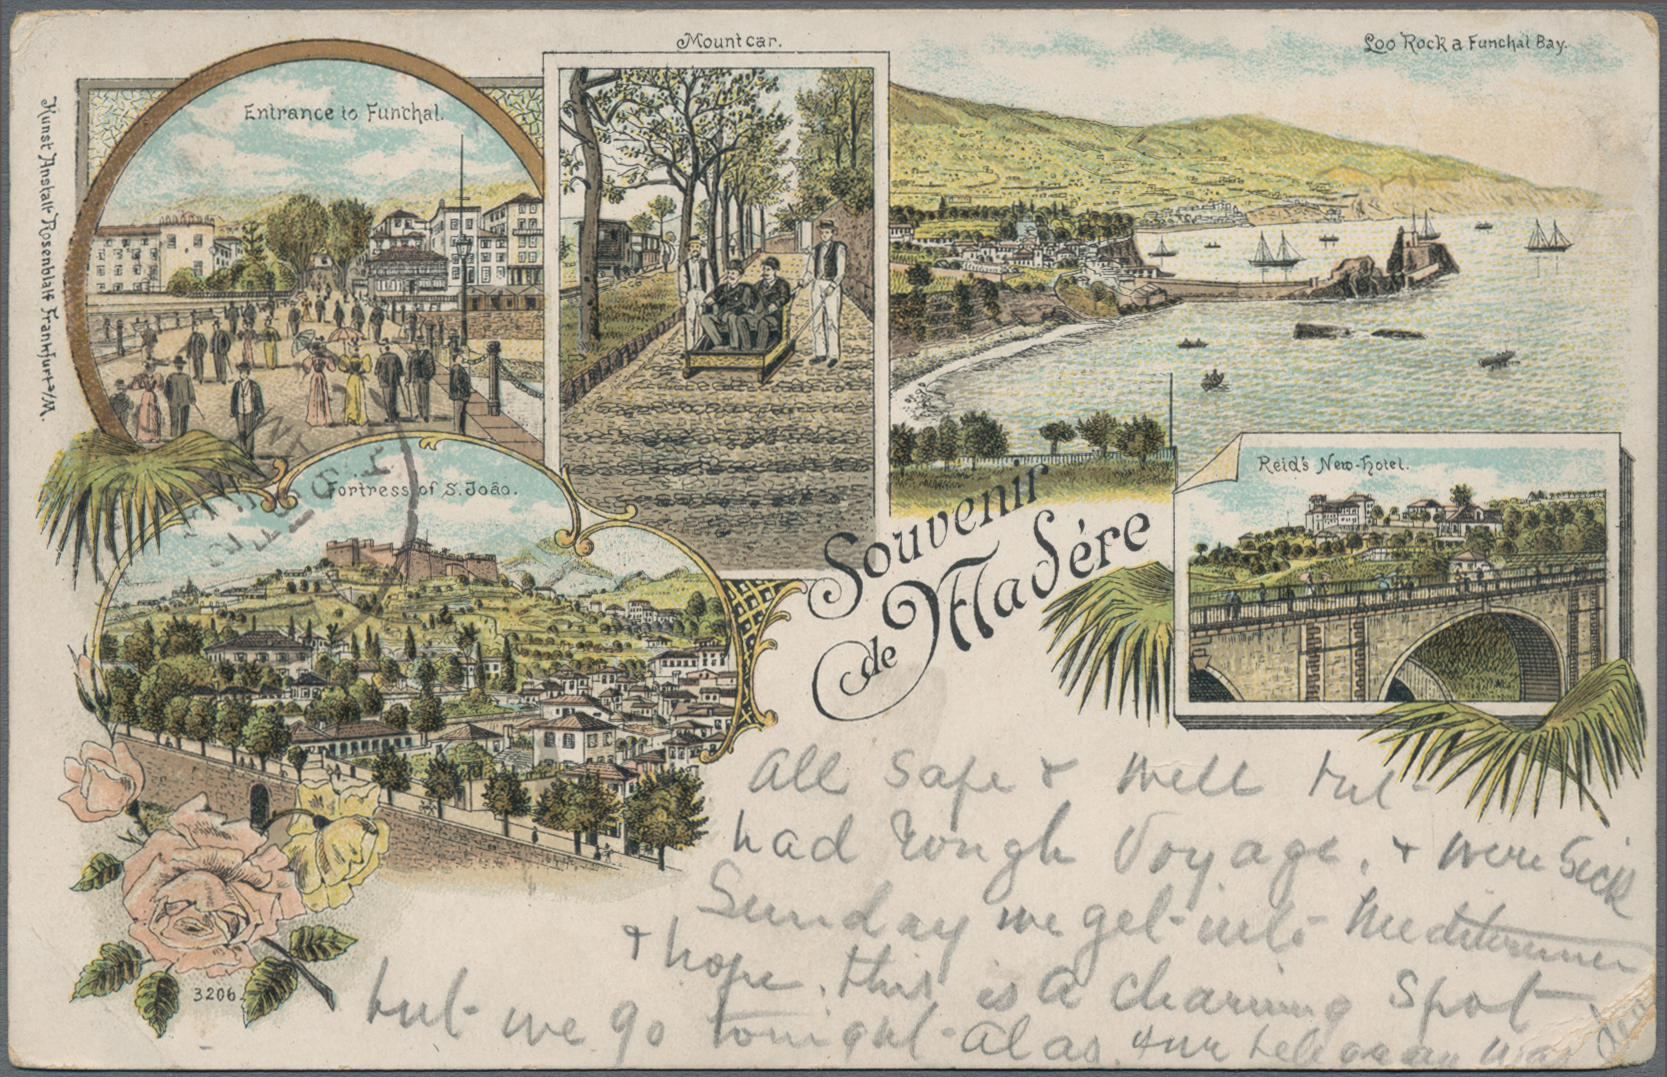 Mountcar.
Loo Rock a Funchal Bay.
Entrance to Funchal.
Kunst Anstalt Rosenblatt Frankfurt a/M.
Reid's New-Hotel.
Fortress of S. João.
Souvenir
de Madére
3206.
All safe & well but
had rough Voyage, & were sick
Sunday we get into
& hope. this is a charming spot
but we go tonight Alas